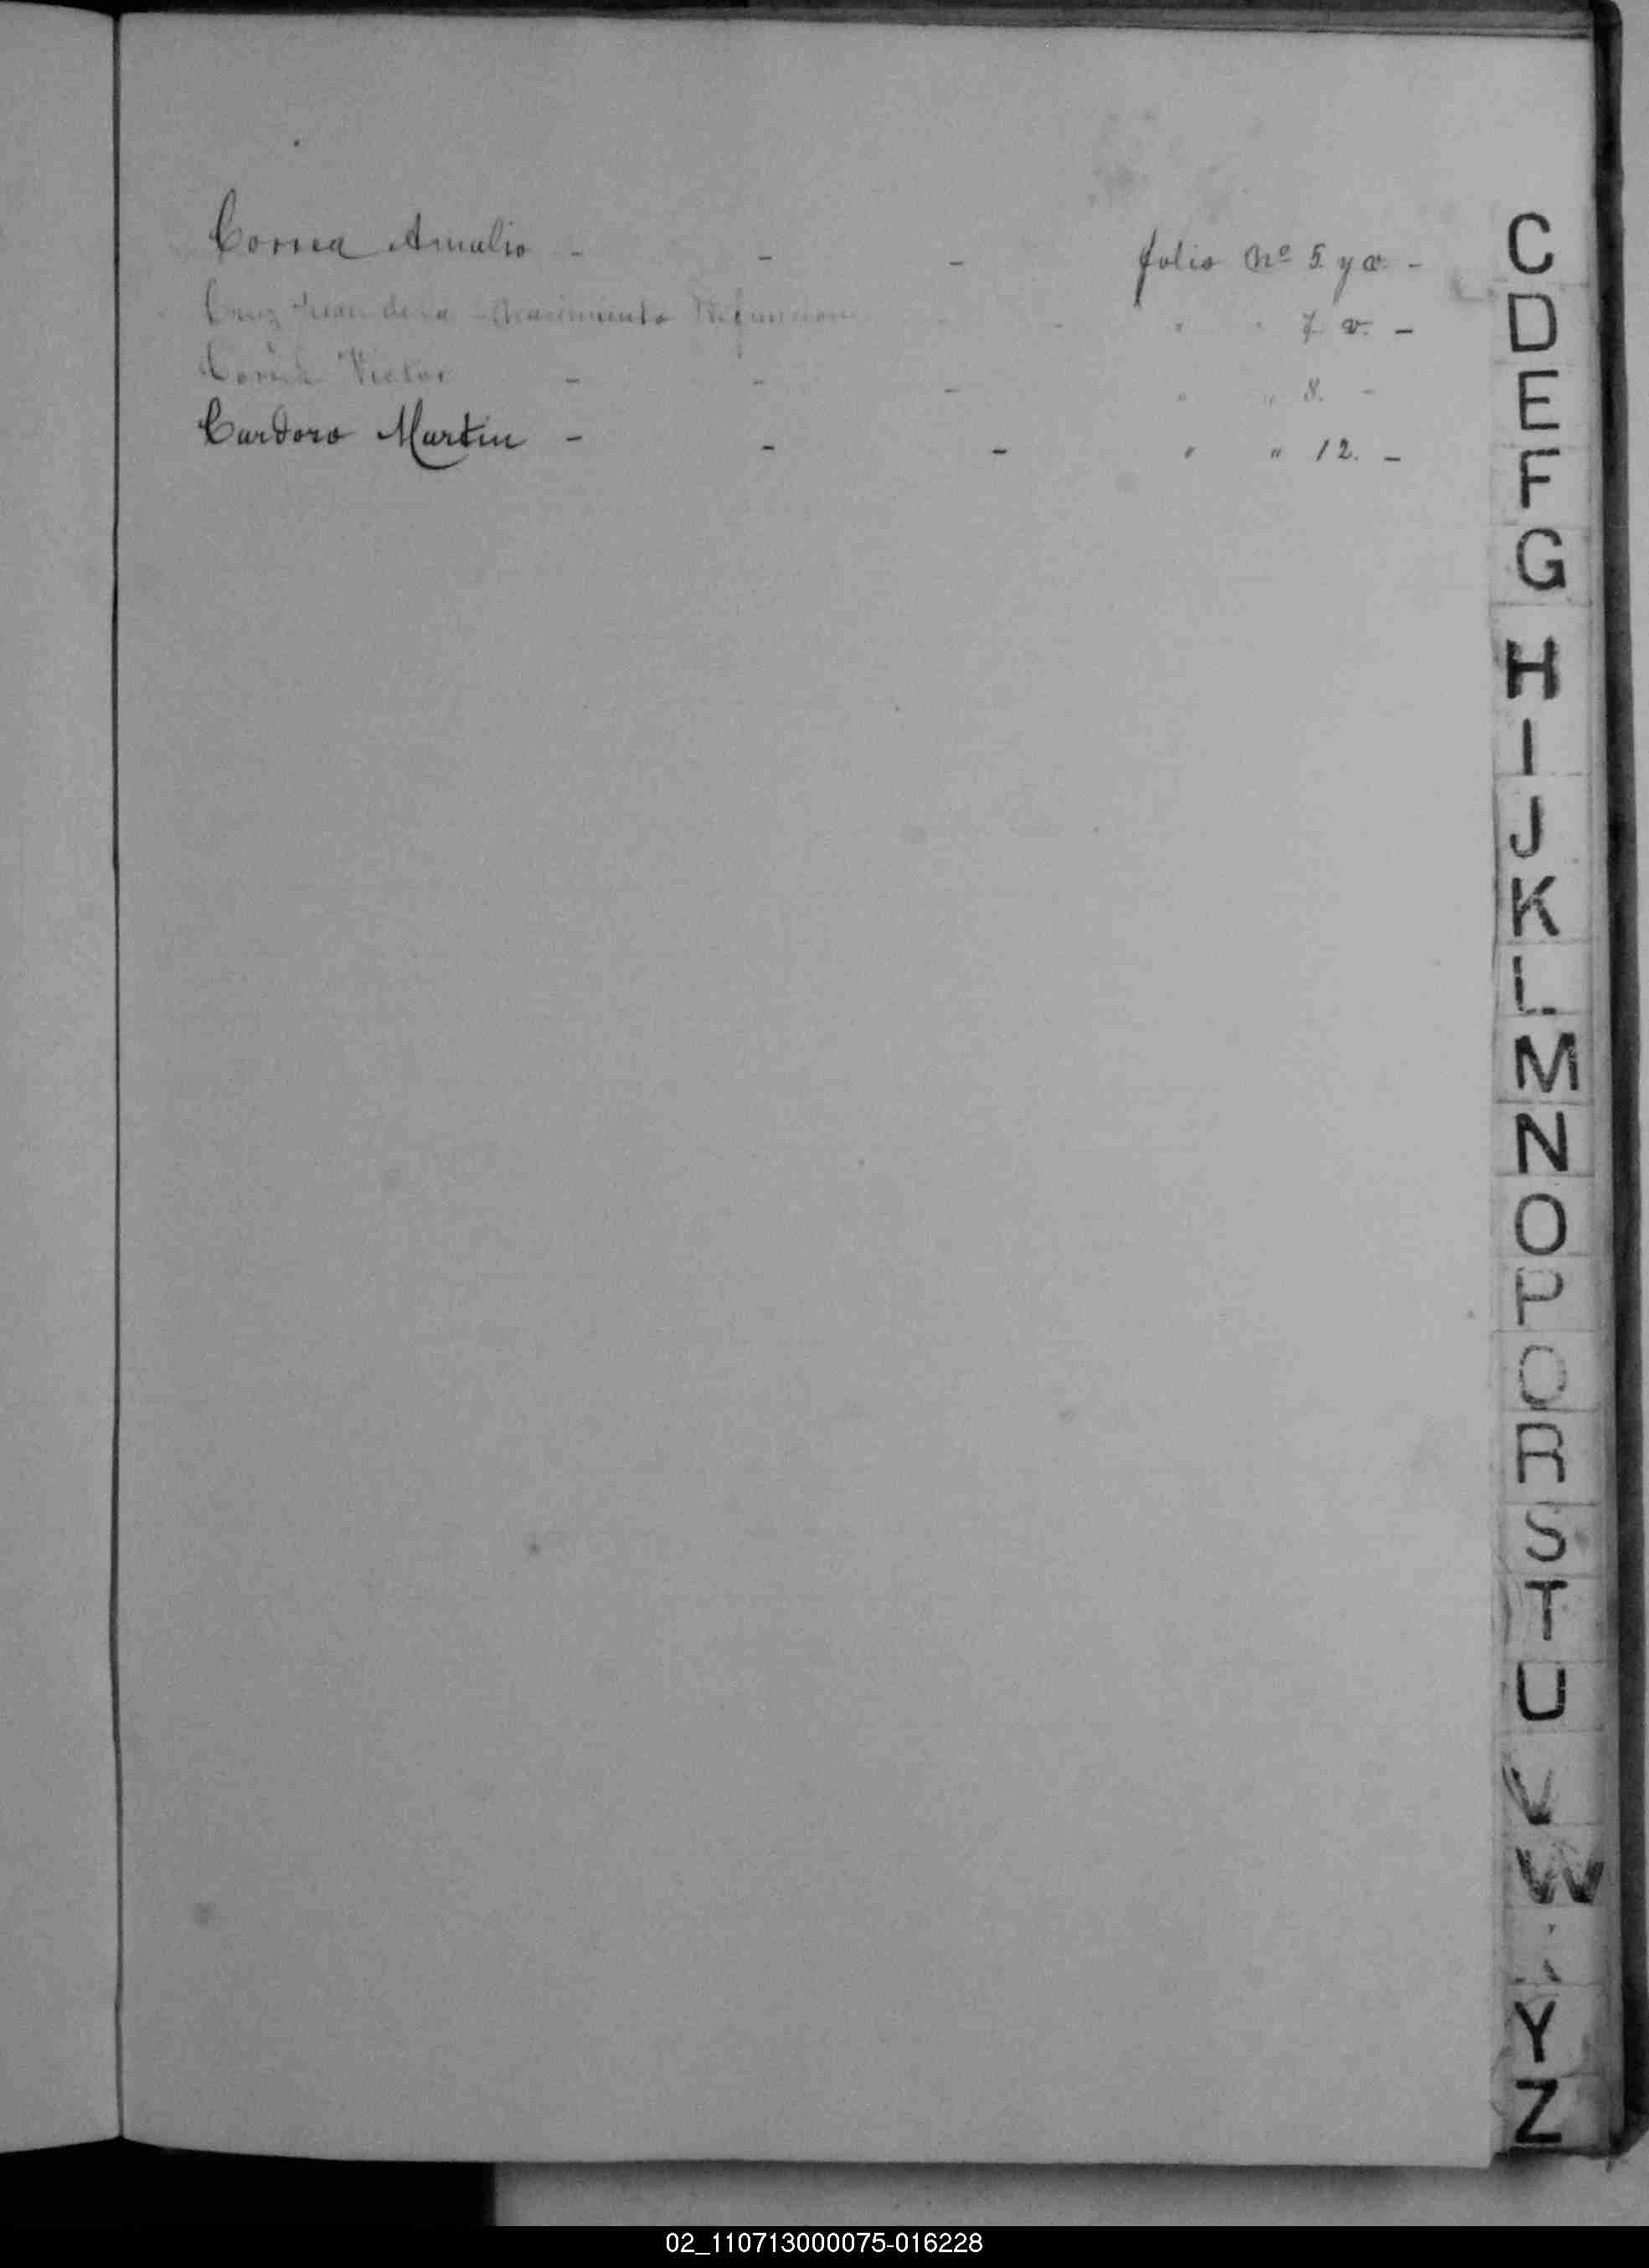 Correa Amalio - - - folio Nº 5 y v. -
Cruz Juan de la - Nacimiento Defuncion - - " " 7 v. -
Correa Victor - - - " " 8. -
Cardoro Martin - - - " " 12. -
C
D
E
F
G
H
I
J
K
L
M
N
O
P
Q
R
S
T
U
V
W
Y
Z
02_110713000075-016228